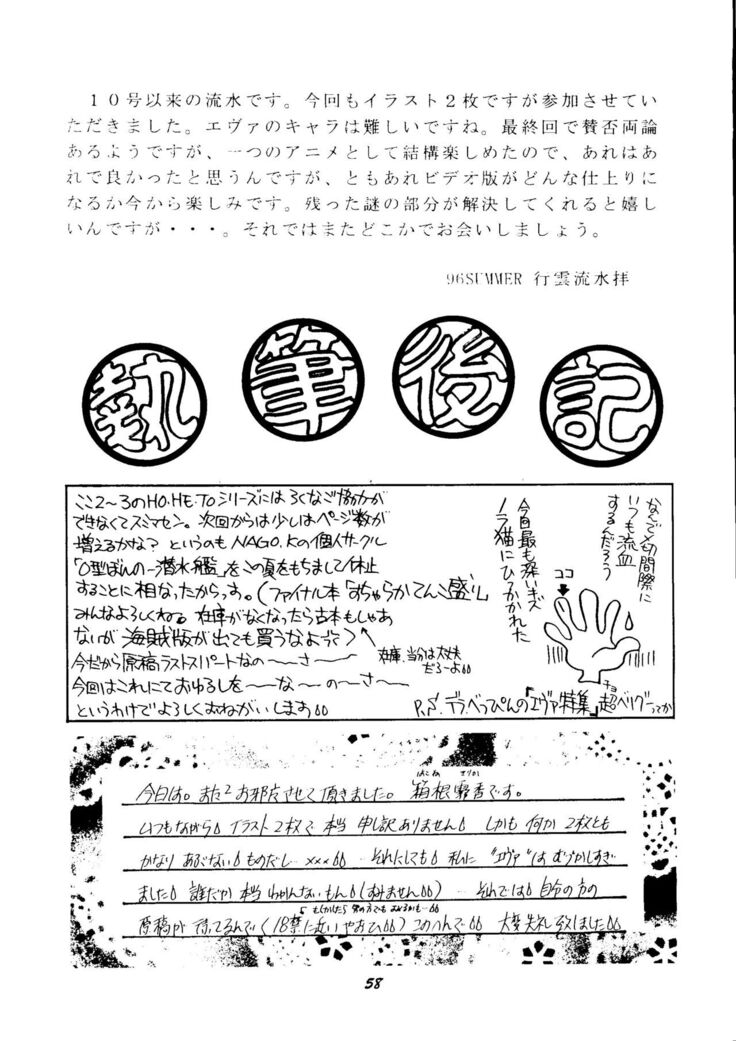 １０号以来の流水です。今回もイラスト２枚ですが参加させてい
ただきました。エヴァのキャラは難しいですね。最終回で賛否両論
あるようですが、一つのアニメとして結構楽しめたので、あれはあ
れで良かったと思うんですが、ともあれビデオ版がどんな仕上りに
なるか今から楽しみです。残った謎の部分が解決してくれると嬉し
いんですが・・・。それではまたどこかでお会いしましょう。
96SUMMER 行雲流水拝
執筆後記
ここ2〜3のHO.HE.TOシリーズにはろくなご協力が
できなくてスミマセン。次回からは少しはページ数が
増えるかな? というのもNAGO.Kの個人サークル
「O型ぼんの一潜水艦」をこの夏をもちまして休止
することに相なったからっす。(ファイナル本「すちゃらかてんこ盛り」
みんなよろしくねる 在庫がなくなったら古本もしゃあ
ないが海賊版が出ても買うなよっ?)
在庫、当分は大丈夫
だろーよ
今だから原稿ラストスパートなの〜〜さ〜〜
今回はこれにておゆるしを〜〜な〜の〜さ〜
というわけでよろしくおねがいします
なんで〆切間際に
いつも流血
するんだろう
ココ
今日最も深いキズ
ノラ猫にひっかかれた
P.S.デラべっぴんの「エヴァ特集」超ベリグーってか
チョ
はこね
今日は。また2お邪魔させて頂きました。箱根霧香です。
いつもながら イラスト2枚で 本当 申し訳ありません しかも 何か 2枚とも
かなり あぶない ものだし… xxx … それにしても 私に "エヴァ"は むづかしすぎ
ました 誰だか 本当 わかんないもん(すみません) … それでは 自分の方の
原稿が 待ってるんで(18禁に近いやおひ) このへんで 大変失礼致しました
58